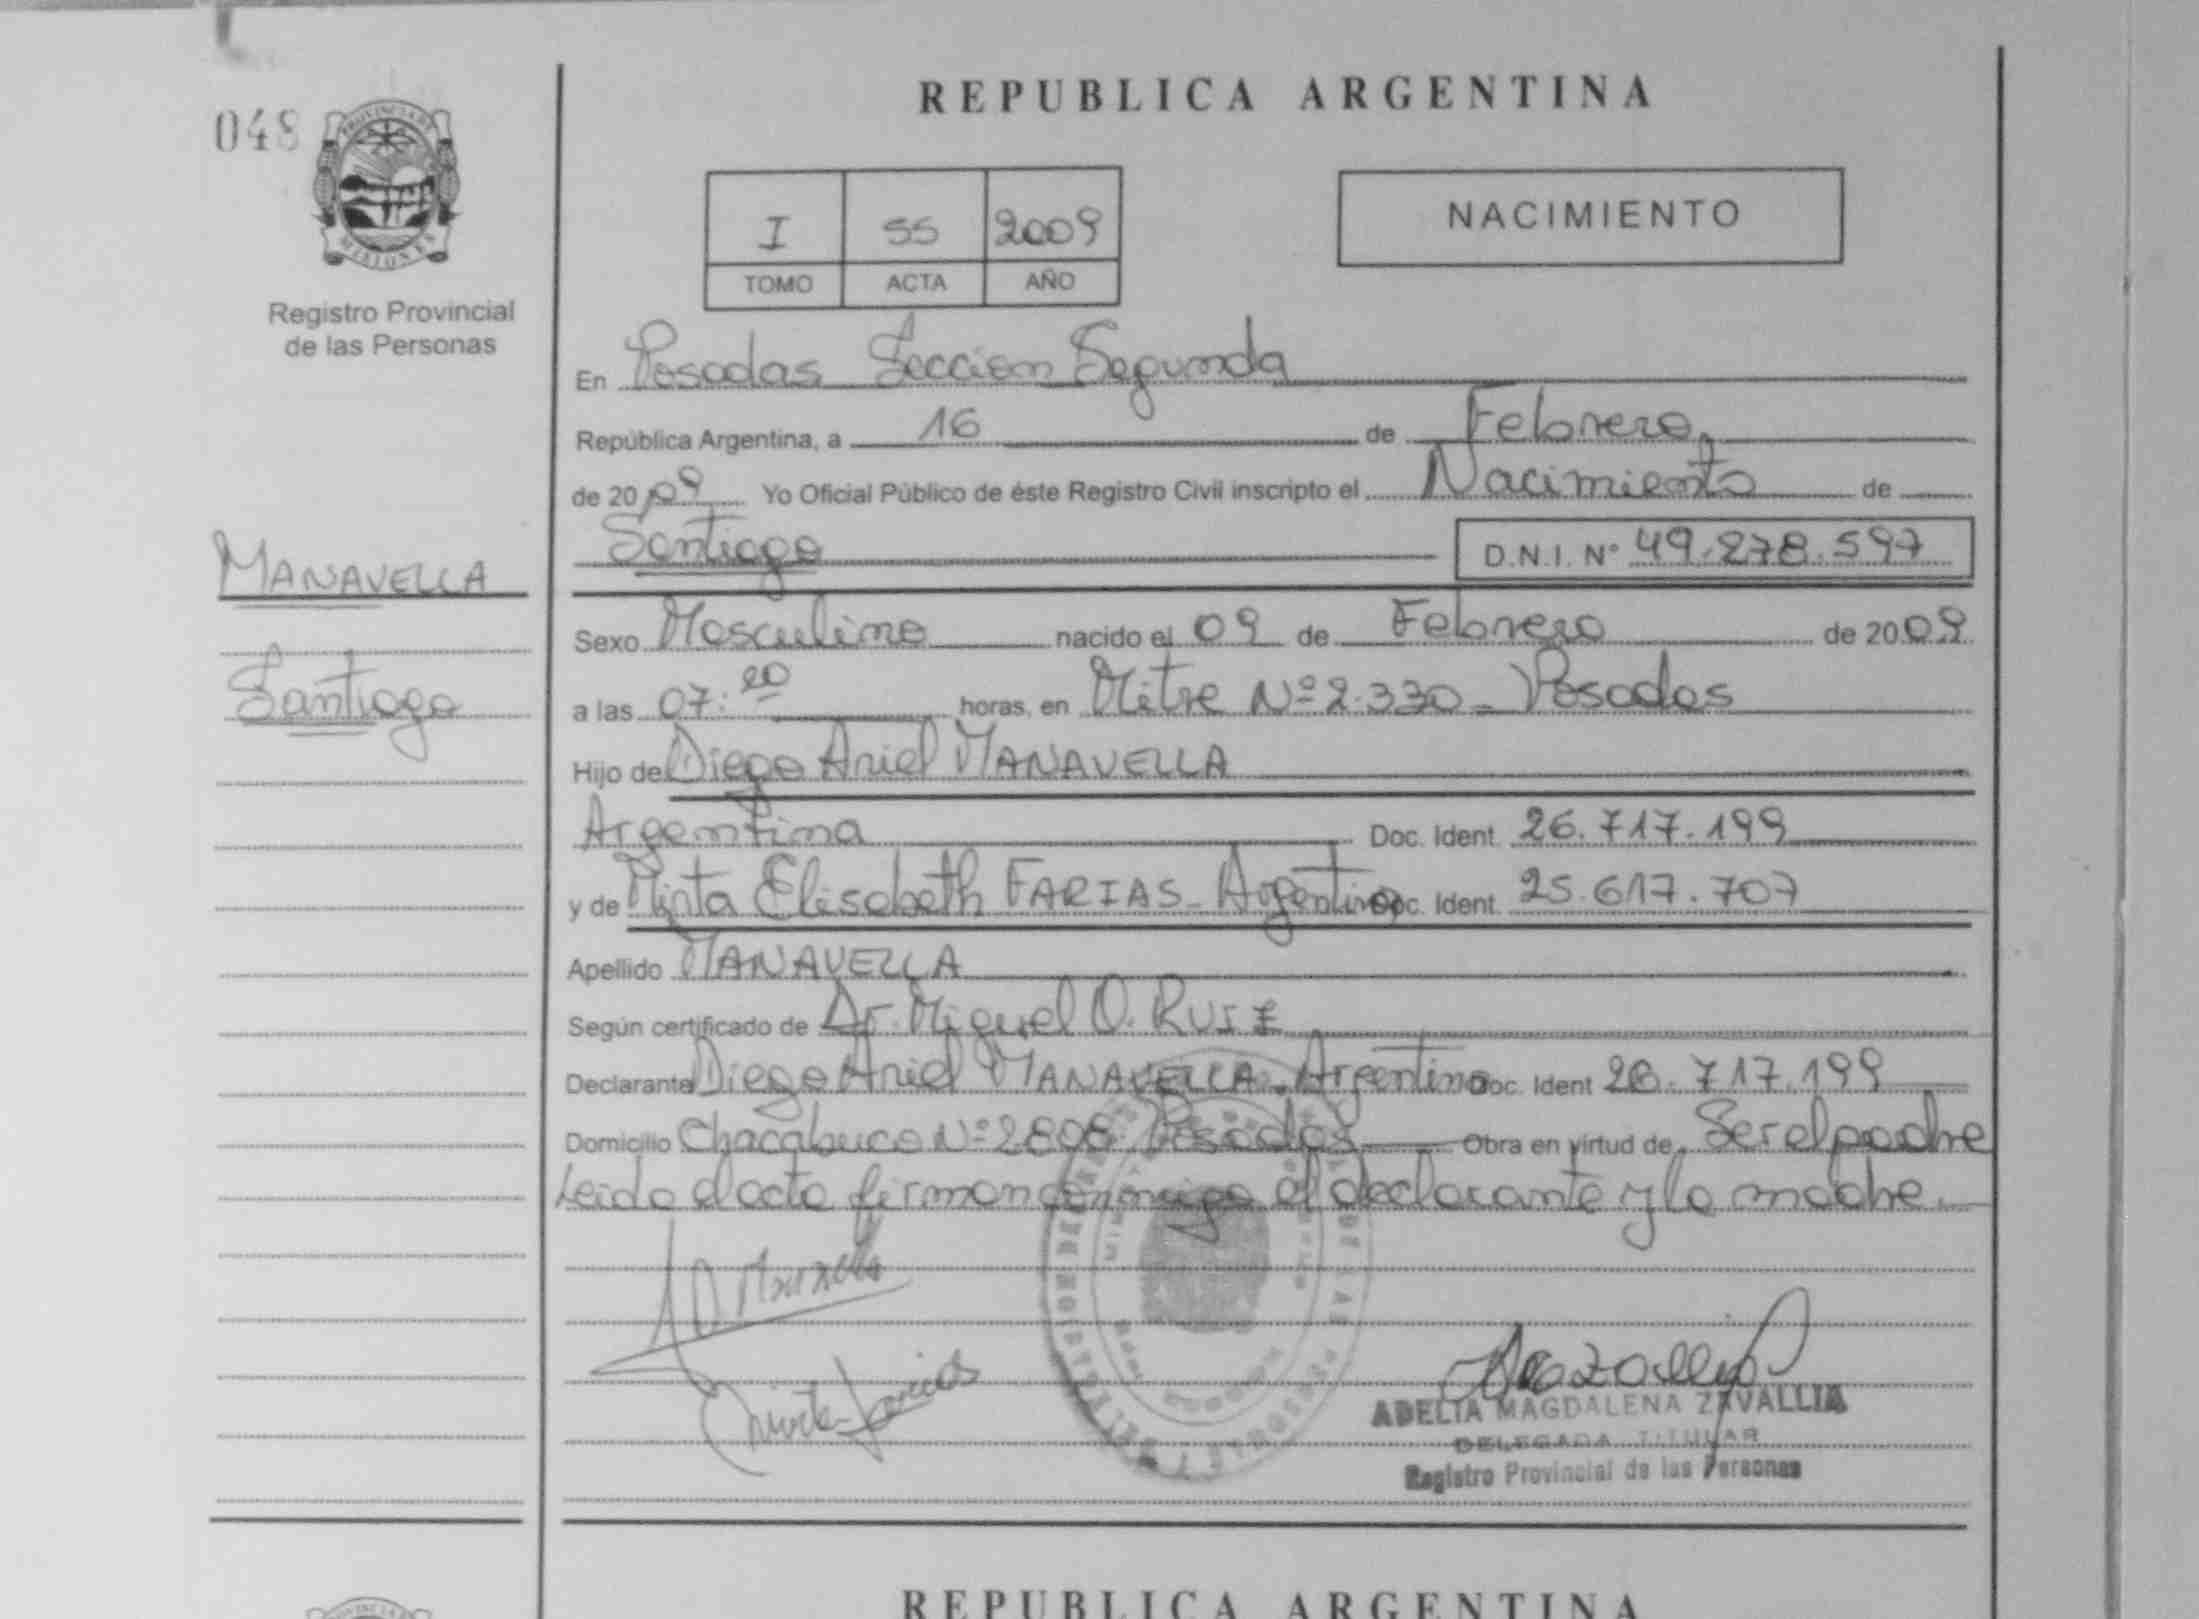 REPUBLICA ARGENTINA
048
PROVINCIA DE
MISIONES
Registro Provincial
de las Personas
I 55 2009
TOMO ACTA AÑO
NACIMIENTO
En Posadas Seccion Segunda
República Argentina, a 16 de Febrero,
de 2009 Yo Oficial Público de éste Registro Civil inscripto el Nacimiento de
Santiago D.N.I. Nº 49.278.597
MANAVELLA
Santiago
Sexo Masculino nacido el 09 de Febrero de 2009
a las 07:20 horas, en Mitre Nº 2.330 - Posadas
Hijo de Diego Ariel MANAVELLA
Argentina Doc. Ident. 26.717.199
y de Mirta Elisabeth FARIAS - Argentina Doc. Ident. 25.617.707
Apellido MANAVELLA
Según certificado de Dr. Miguel O. RUIZ
Declarante Diego Ariel MANAVELLA - Argentino Doc. Ident 26.717.199
Domicilio Chacabuco Nº 2808 Posadas Obra en virtud de Ser el padre
Leida el acta firman conmigo el declarante y la madre.
ADELIA MAGDALENA ZAVALLIA
DELEGADA TITULAR
Registro Provincial de las Personas
REPUBLICA ARGENTINA